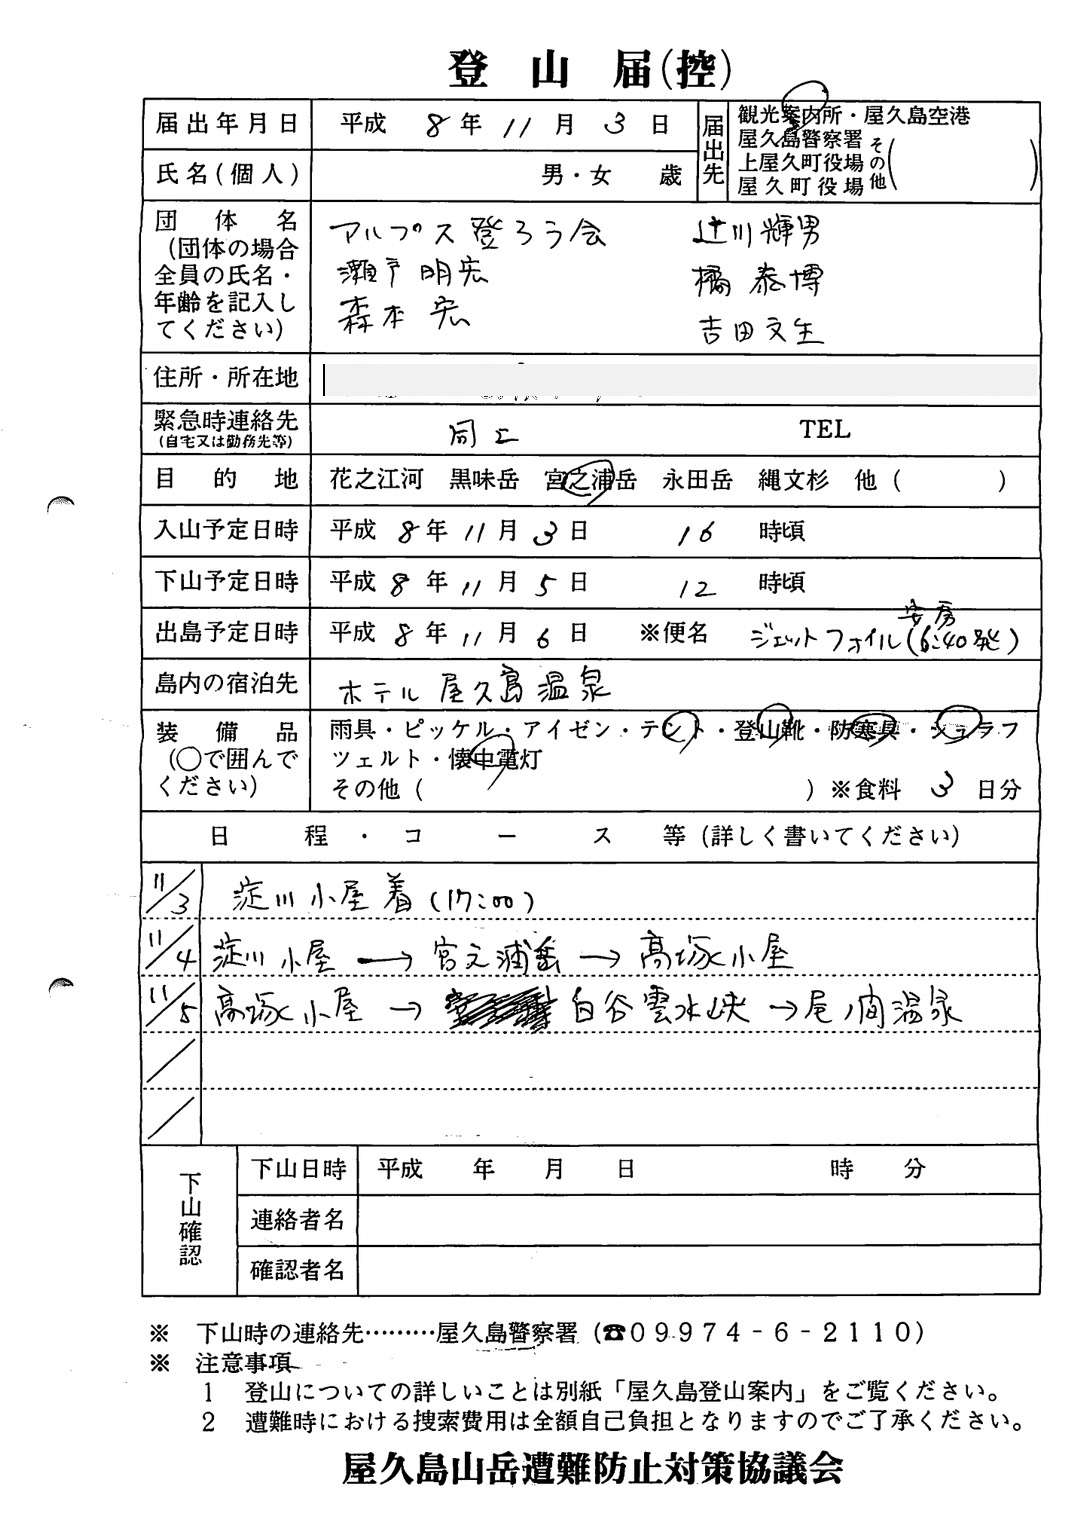 登山届(控)
届出年月日 平成 8 年 11 月 3 日
届出先
観光案内所・屋久島空港
屋久島警察署
上屋久町役場
屋久町役場
その他( )
氏名(個人) 男・女 歳
団体名
(団体の場合
全員の氏名・
年齢を記入し
てください)
アルプス登ろう会 辻川輝男
瀬戸明宏 橘泰博
森本宏 吉田文生
住所・所在地
緊急時連絡先 同上 TEL
(自宅又は勤務先等)
目的地 花之江河 黒味岳 宮之浦岳 永田岳 縄文杉 他( )
入山予定日時 平成 8 年 11 月 3 日 16 時頃
下山予定日時 平成 8 年 11 月 5 日 12 時頃
安房
出島予定日時 平成 8 年 11 月 6 日 ※便名 ジェットフォイル(6:40発)
島内の宿泊先 ホテル屋久島温泉
装備品
(○で囲んで
ください)
雨具・ピッケル・アイゼン・テント・登山靴・防寒具・シュラフ
ツェルト・懐中電灯
その他( )※食料 3 日分
日程・コース等(詳しく書いてください)
11/3 淀川小屋着(17:00)
11/4 淀川小屋→宮之浦岳→高塚小屋
11/5 高塚小屋→白谷雲水峡→尾ノ間温泉
/
/
下山確認
下山日時 平成 年 月 日 時 分
連絡者名
確認者名
※ 下山時の連絡先………屋久島警察署(☎09974-6-2110)
※ 注意事項
1 登山についての詳しいことは別紙「屋久島登山案内」をご覧ください。
2 遭難時における捜索費用は全額自己負担となりますのでご了承ください。
屋久島山岳遭難防止対策協議会